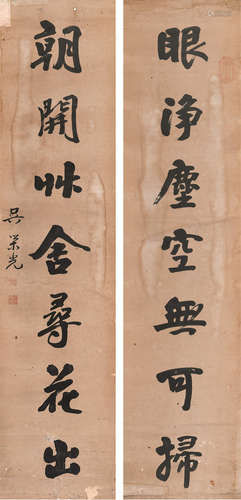 眼淨塵空無可掃
朝開艸舍尋花出
吳榮光